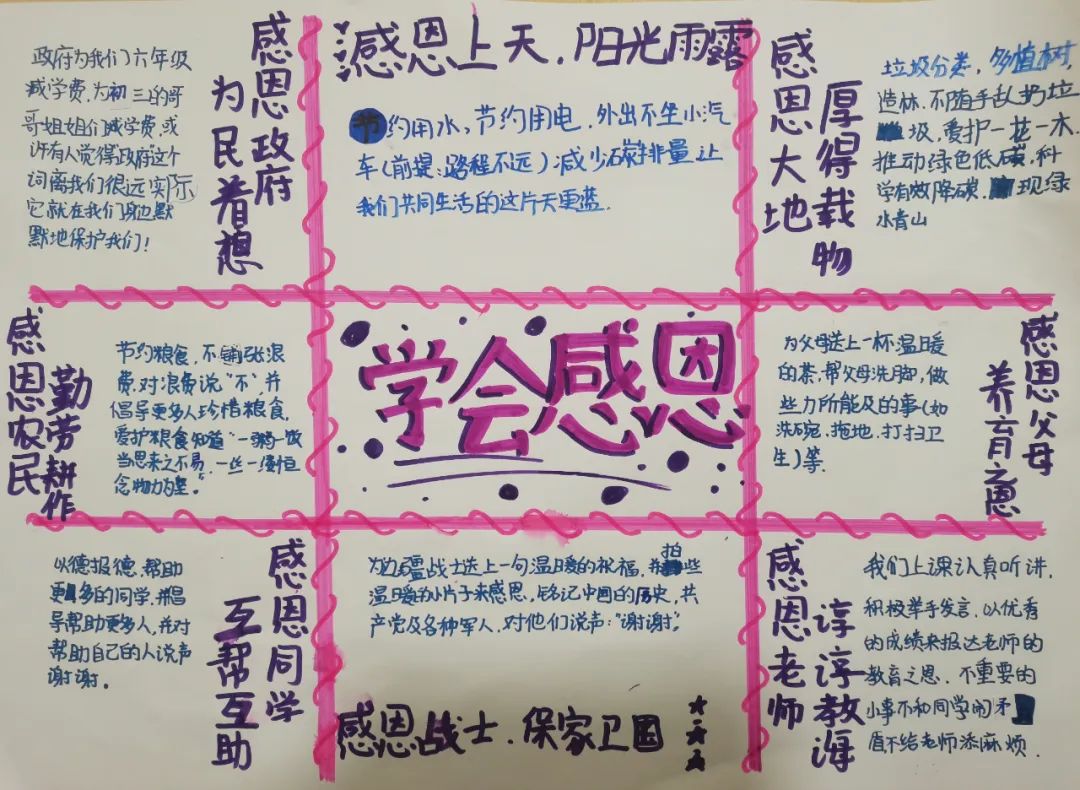 感恩政府
为民着想
政府为我们六年级
减学费,为初三的哥
哥姐姐们减学费,或
许有人觉得"政府"这个
词离我们很远,实际
它就在我们身边默
默地保护我们!
感恩上天,阳光雨露
节约用水,节约用电,外出不坐小汽
车(前提:路程不远)减少碳排量,让
我们共同生活的这片天更蓝.
感恩大地
厚得载物
垃圾分类,多植树,
造林,不随手乱扔垃
圾,爱护一花一木.
推动绿色低碳,科
学有效降碳,现绿
水青山
感恩农民
勤劳耕作
节约粮食,不铺张浪
费,对浪费说"不",并
倡导更多人珍惜粮食,
爱护粮食知道"一粥一饭
当思来之不易,一丝一缕恒
念物力为坚。"
学会感恩
为父母送上一杯温暖
的茶,帮父母洗脚,做
些力所能及的事(如
洗碗,拖地,打扫卫
生)等.
感恩父母
养育之恩
以德报德,帮助
更多的同学,并倡
导帮助更多人,并对
帮助自己的人说声
谢谢.
感恩同学
互帮互助
为边疆战士送上一句温暖的祝福,并拍些
温暖的小片子来感恩,铭记中国的历史,共
产党及各种军人,对他们说声:"谢谢".
感恩战士,保家卫国
感恩老师
谆谆教海
我们上课认真听讲,
积极举手发言,以优秀
的成绩来报达老师的
教育之恩,不重要的
小事不和同学闹矛
盾不给老师添麻烦.